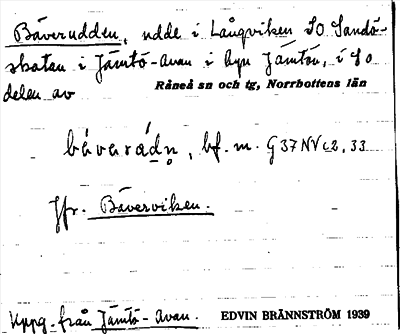 Bäverudden, udde i Långviken SO Sandö-
skatan i Jämtö-avan i byn Jämtön, i SO
delen av
Råneå sn och tg, Norrbottens län
bä́varádn̥, bf. m. G37NVc2, 33
Jfr. Bäverviken.
Uppg. från Jämtö-avan.
EDVIN BRÄNNSTRÖM 1939